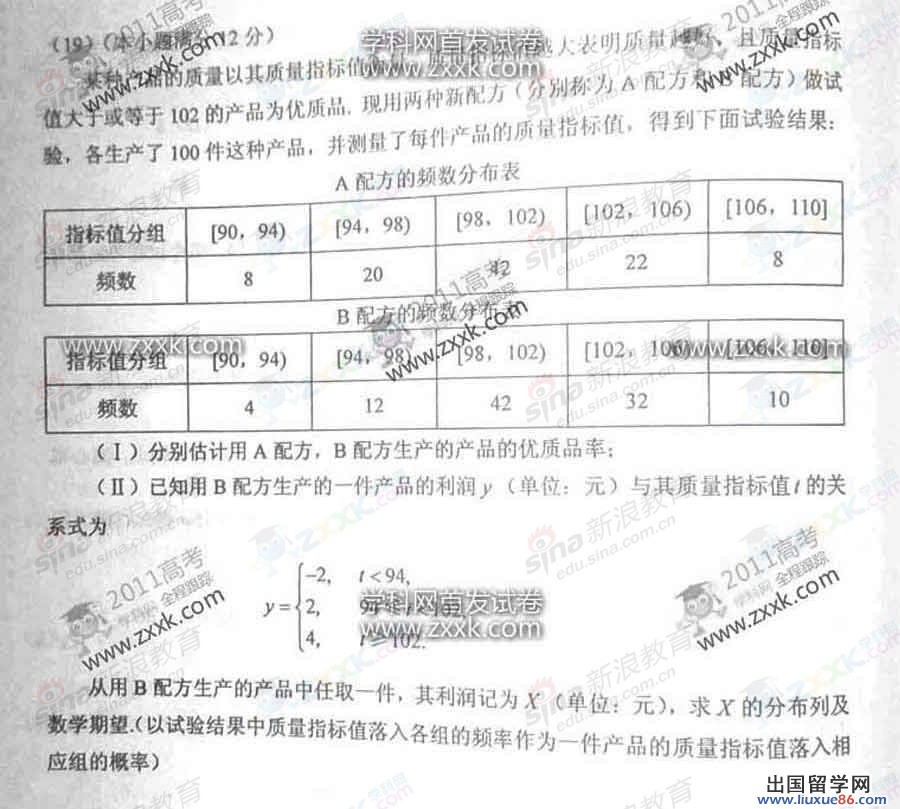 (19)(本小题满分12分)
某种产品的质量以其质量指标值 越大表明质量越好,且质量指标
值大于或等于102的产品为优质品.现用两种新配方(分别称为A配方和B配方)做试
验,各生产了100件这种产品,并测量了每件产品的质量指标值,得到下面试验结果:
A配方的频数分布表
指标值分组 [90,94) [94,98) [98,102) [102,106) [106,110]
频数 8 20 42 22 8
B配方的频数分布表
指标值分组 [90,94) [94,98) [98,102) [102,106) [106,110]
频数 4 12 42 32 10
(Ⅰ)分别估计用A配方,B配方生产的产品的优质品率;
(Ⅱ)已知用B配方生产的一件产品的利润y(单位:元)与其质量指标值t的关
系式为
y= -2, t<94,
2, 94≤t<102,
4, t≥102.
从用B配方生产的产品中任取一件,其利润记为X(单位:元),求X的分布列及
数学期望.(以试验结果中质量指标值落入各组的频率作为一件产品的质量指标值落入相
应组的概率)
学科网首发试卷
www.zxxk.com
2011高考
学科网 全程跟踪
www.zxxk.com
sina新浪教育
edu.sina.com.cn
出国留学网
www.liuxue86.com